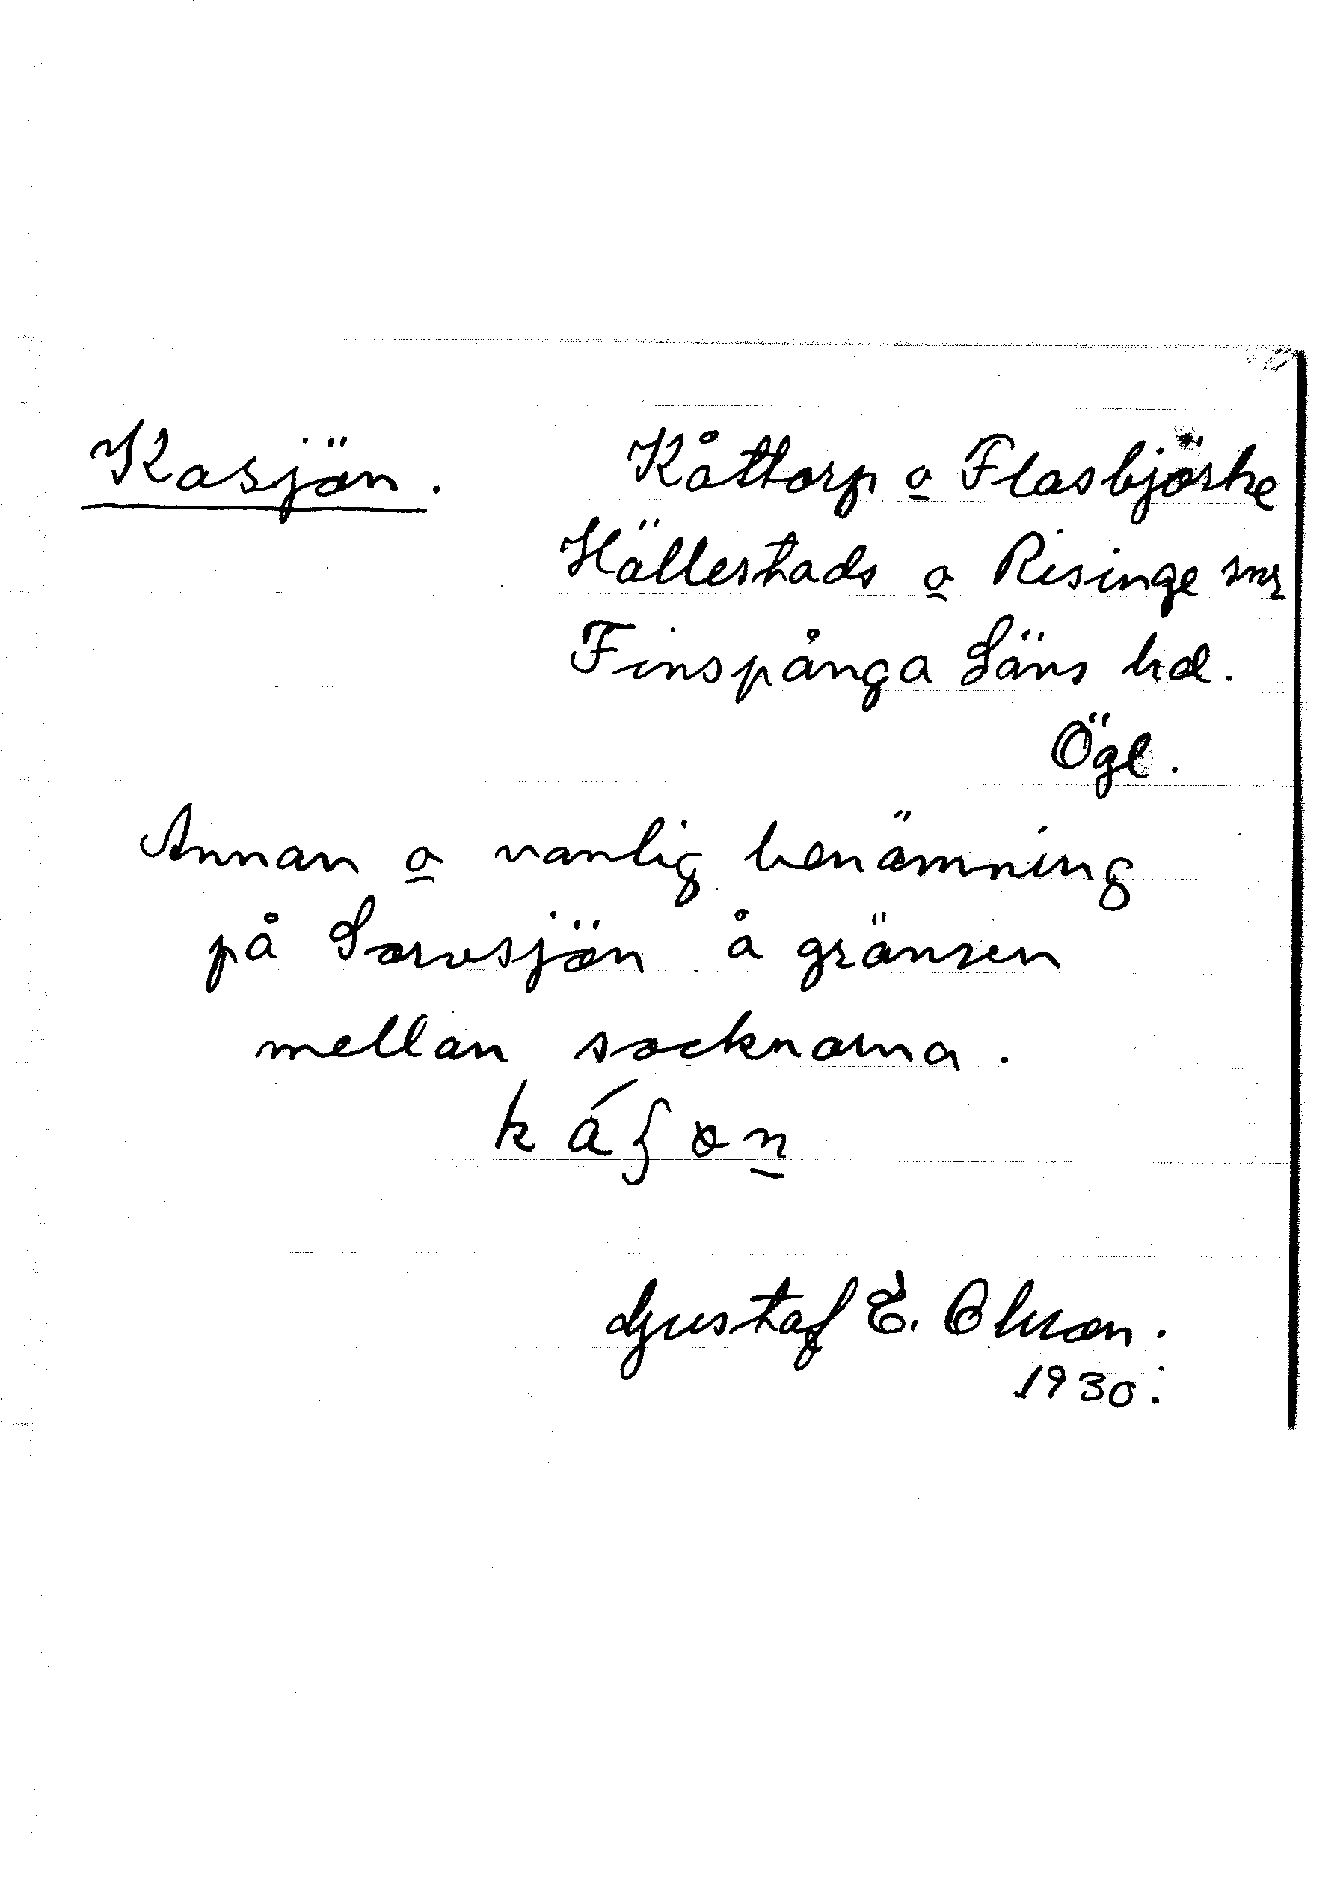 Kasjön.
Kåttorp o Flasbjörke
Hällestads o Risinge snr
Finspånga Läns hd.
Ögl.
Annan o vanlig benämning
på Sorvsjön å gränsen
mellan socknarna.
Gustaf E. Olsson.
1930.